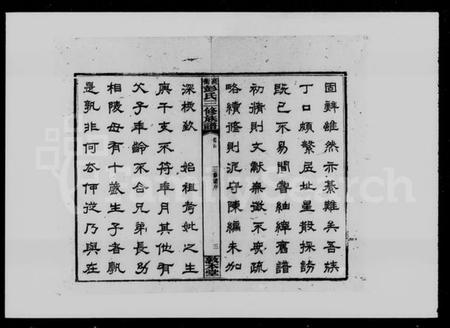 固辭雖然亦綦難矣吾族
丁口頗繁居址星散採訪
既已不易間嘗紬繹舊譜
初脩則文獻無徵不免疏
略續修則泥守陳編未加
彭氏三修族譜
卷首
三修譜序
三
敦本堂
深核致 始祖考妣之生
庚干支不符年月其他有
父子年齡不合兄弟長幼
相陵毋有十歲生子者孰
是孰非何去何從乃與在